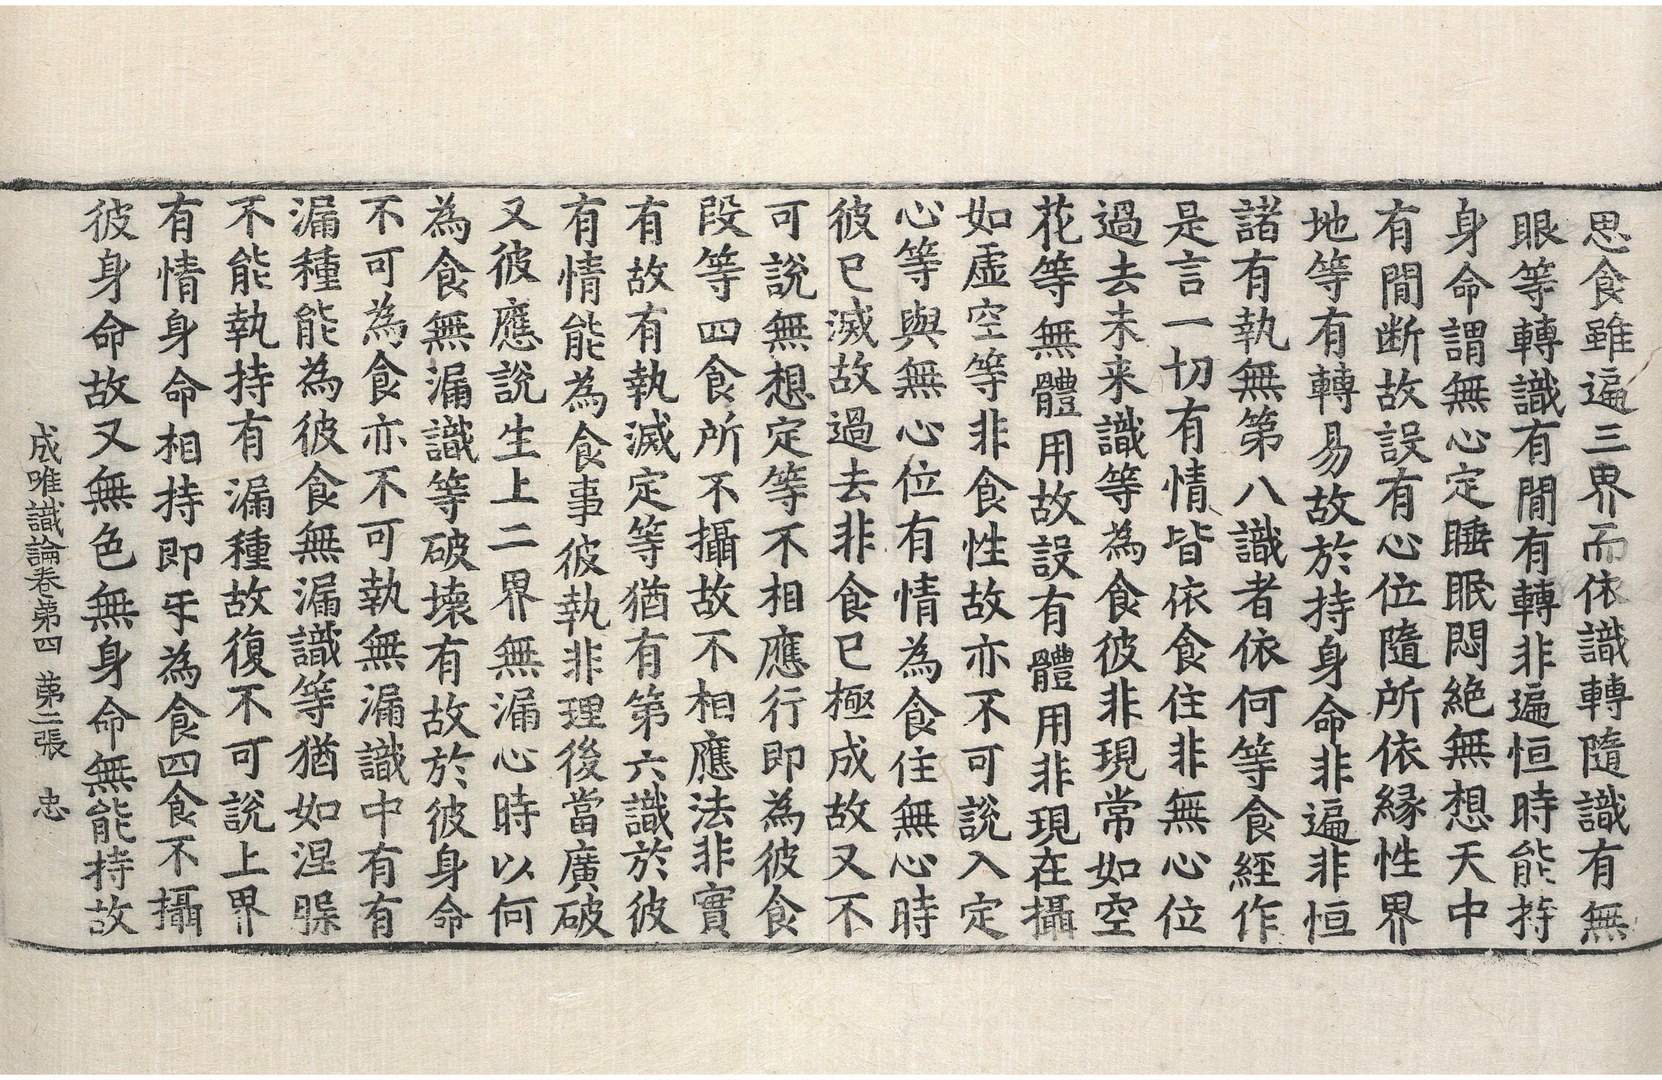 思食雖遍三界而依識轉隨識有無
眼等轉識有間有轉非遍恒時能持
身命謂無心定睡眠悶絕無想天中
有間断故設有心位隨所依緣性界
地等有轉易故於持身命非遍非恒
諸有執無第八識者依何等食經作
是言一切有情皆依食住非無心位
過去未来識等為食彼非現常如空
花等無體用故設有體用非現在攝
如虛空等非食性故亦不可說入定
心等與無心位有情為食住無心時
彼已滅故過去非食已極成故又不
可說無想定等不相應行即為彼食
段等四食所不攝故不相應法非實
有故有執滅定等猶有第六識於彼
有情能為食事彼執非理後當廣破
又彼應說生上二界無漏心時以何
為食無漏識等破壞有故於彼身命
不可為食亦不可執無漏識中有有
漏種能為彼食無漏識等猶如涅槃
不能執持有漏種故復不可說上界
有情身命相持即㸦為食四食不攝
彼身命故又無色無身命無能持故
成唯識論卷第四 第二張 忠